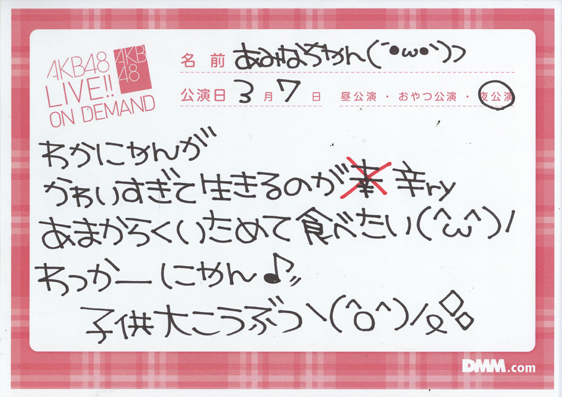 AKB48
LIVE!!
ON DEMAND
AKB
48
名前 あみなちゃん(´•ω•`)っ
公演日 3月7日 昼公演・おやつ公演・夜公演
わかにゃんが
かわいすぎて生きるのが幸辛ry
あまからくいためて食べたい(^ω^)ノ
わっかーにゃん♪〃
子供大こうぶつヽ(^o^)ノ
DMM.com